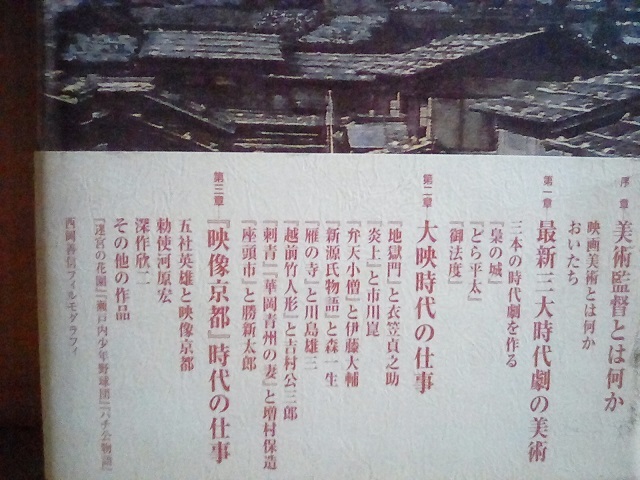 序章 美術監督とは何か
映画美術とは何か
おいたち
第一章 最新三大時代劇の美術
三本の時代劇を作る
『梟の城』
『どら平太』
『御法度』
第二章 大映時代の仕事
『地獄門』と衣笠貞之助
『炎上』と市川崑
『弁天小僧』と伊藤大輔
『新源氏物語』と森一生
『雁の寺』と川島雄三
『越前竹人形』と吉村公三郎
『刺青』『華岡青州の妻』と増村保造
『座頭市』と勝新太郎
第三章 『映像京都』時代の仕事
五社英雄と映像京都
勅使河原宏
深作欣二
その他の作品
『迷宮の花園』『瀬戸内少年野球団』『ハチ公物語』
西岡善信フィルモグラフィ